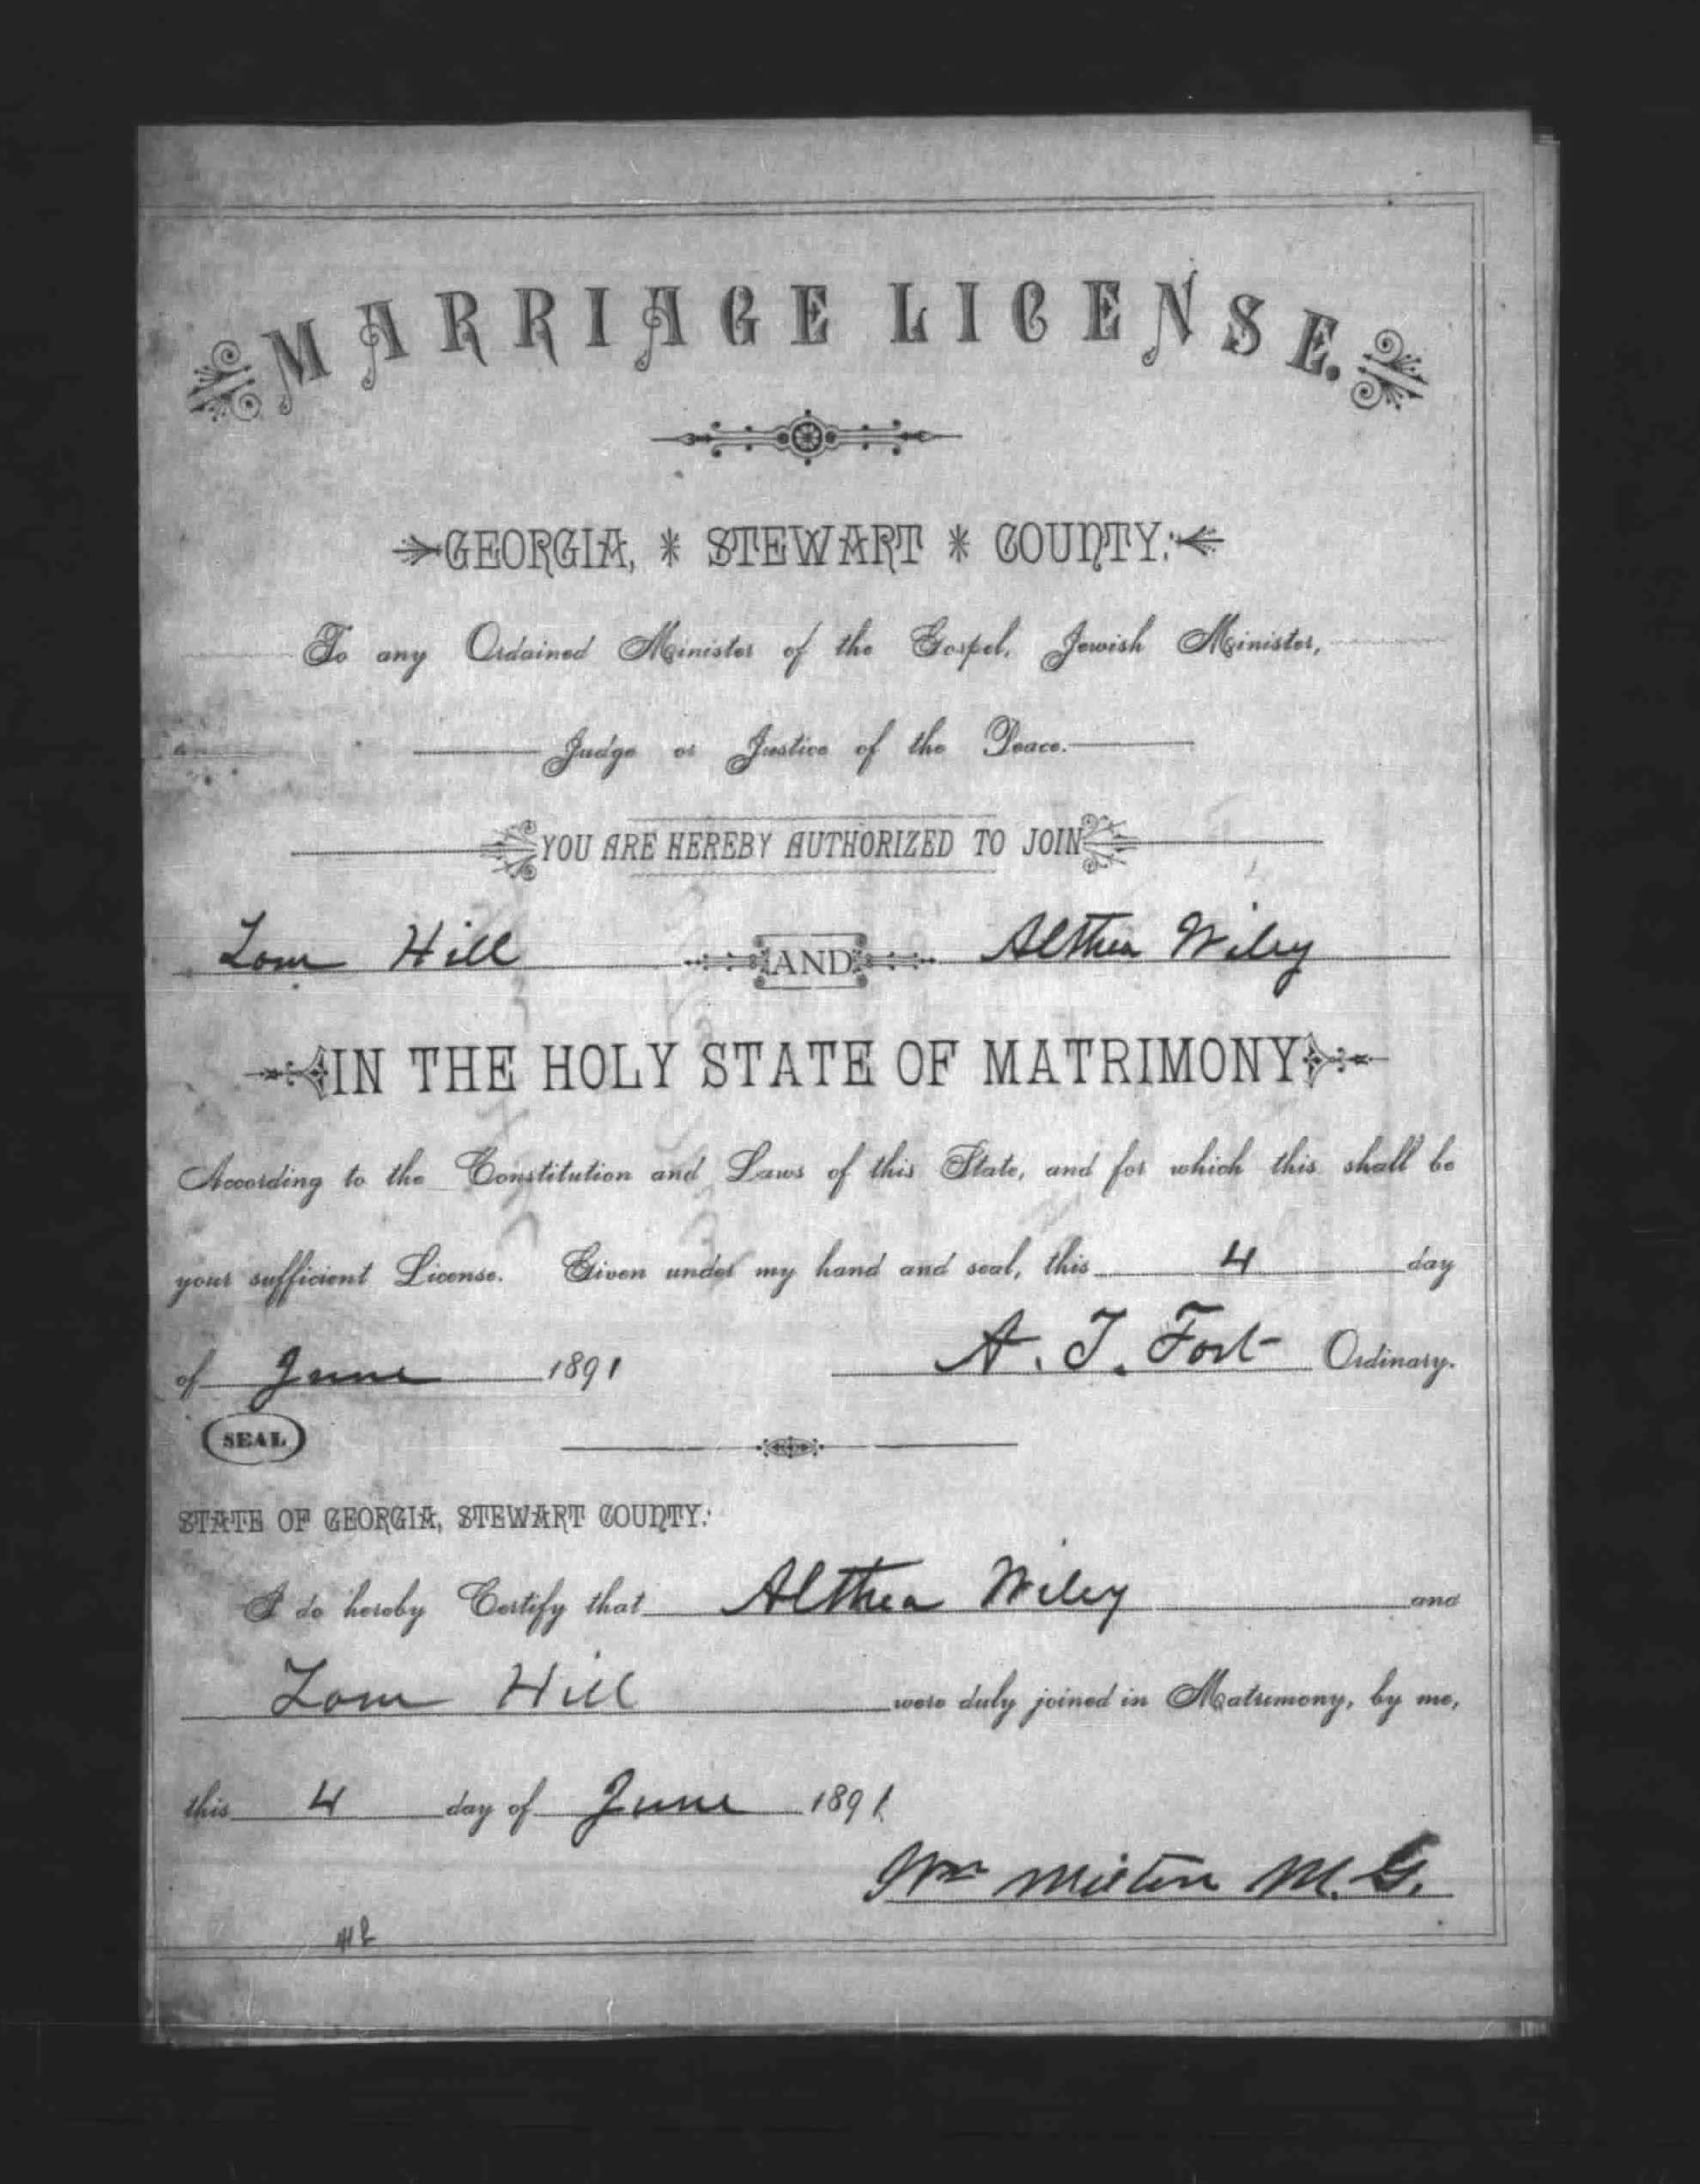 MARRIAGE LICENSE.
GEORGIA, * STEWART * COUNTY:
To any Ordained Minister of the Gospel, Jewish Minister,
Judge or Justice of the Peace.
YOU ARE HEREBY AUTHORIZED TO JOIN
Tom Hill AND Althea Wiley
IN THE HOLY STATE OF MATRIMONY
According to the Constitution and Laws of this State, and for which this shall be
your sufficient License. Given under my hand and seal, this 4 day
of June 1891 A. T. Fort Ordinary.
SEAL
STATE OF GEORGIA, STEWART COUNTY:
I do hereby Certify that Althea Wiley and
Tom Hill were duly joined in Matrimony, by me,
this 4 day of June 1891
Wm Milton M. G.